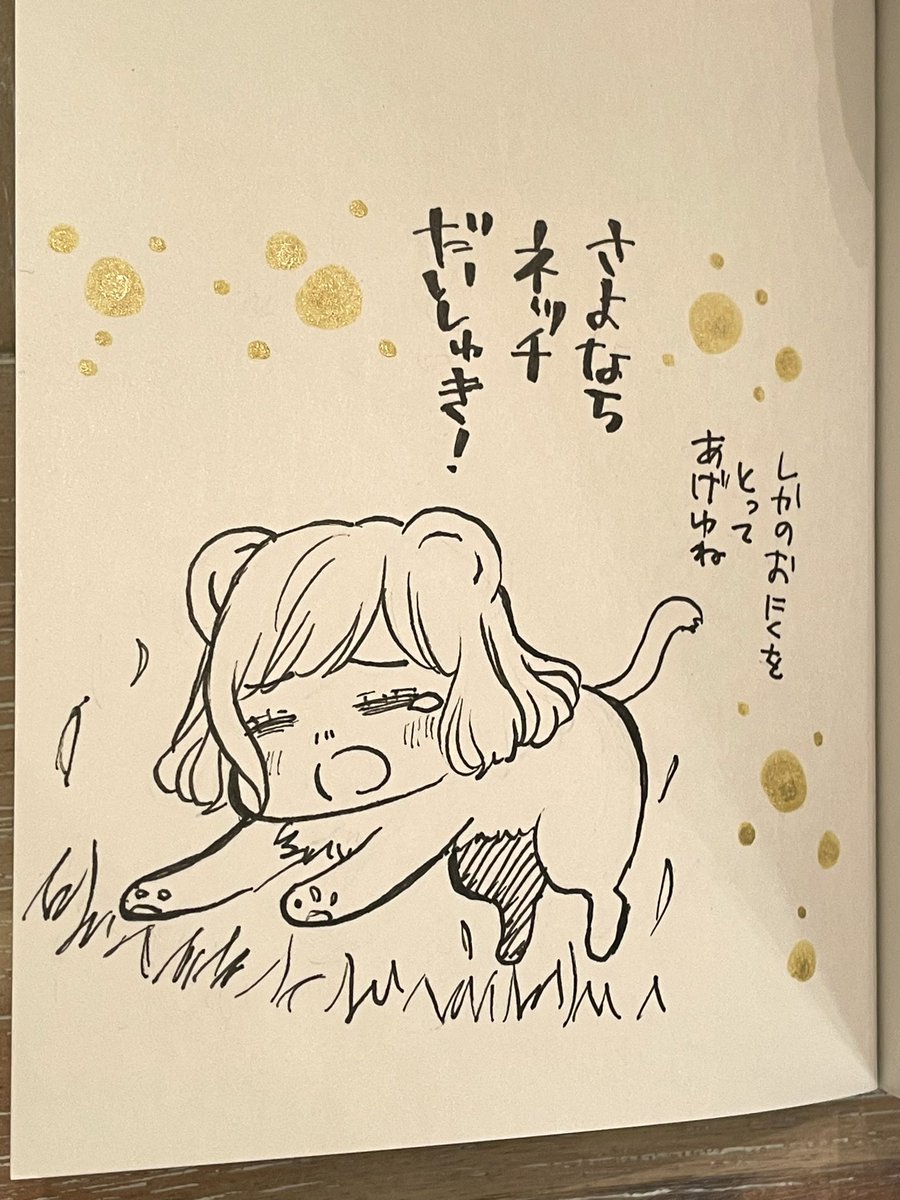 さよなち
ネッチ
だいしゅき!
しかのおにくを
とって
あげゆね